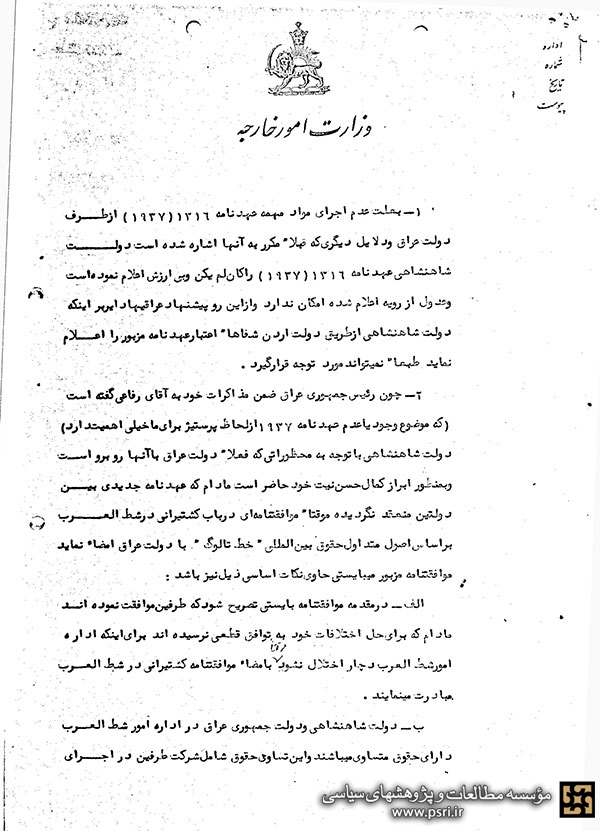 اداره
شماره
تاریخ
پیوست
وزارت امور خارجه
۱ــ بعلت عدم اجرای مواد مهمه عهدنامه ۱۳۱۶ (۱۹۳۷) ازطــرف
دولت عراق ودلایل دیگری که قبلا" مکرر به آنها اشاره شده است دولــت
شاهنشاهی عهدنامه ۱۳۱۶ (۱۹۳۷) راکان لم یکن وبی ارزش اعلام نموده است
وعدول از رویه اعلام شده امکان ندارد وازاین رو پیشنهاد عراقیها دایربر اینکه
دولت شاهنشاهی ازطریق دولت اردن شفاها" اعتبار عهدنامه مزبور را اعــلام
نماید طبعا" نمیتواند مورد توجه قرارگیرد .
۲ــ چون رئیس جمهوری عراق ضمن مذاکرات خود به آقای رفاعی گفته است
(که موضوع وجود یاعدم عهدنامه ۱۹۳۷ ازلحاظ پرستیژ برای ما خیلی اهمیت دارد)
دولت شاهنشاهی با توجه به محظوراتی که فعلا" دولت عراق باآنها روبرو اســت
وبمنظور ابراز کمال حسن نیت خود حاضر است مادام که عهدنامه جدیدی بیــن
دولتین منعقد نگردیده موقتا" موافقتنامه ای درباب کشتیرانی درشط العــرب
براساس اصول متداول حقوق بین المللی " خط تالوگ " با دولت عراق امضاء نماید
موافقتنامه مزبور میبایستی حاوی نکات اساسی ذیل نیز باشد :
الف ــ درمقدمه موافقتنامه بایستی تصریح شود که طرفین موافقت نموده انــد
مادام که برای حل اختلافات خود به توافق قطعی نرسیده اند برای اینکه اداره
امورشط العرب دچار اختلال نشود بامضاء موافقتنامه کشتیرانی در شط العــرب
مبادرت مینمایند .
ب ــ دولت شاهنشاهی ودولت جمهوری عراق در اداره امور شط العــرب
دارای حقوق متساوی میباشند واین تساوی حقوق شامل شرکت طرفین در اجــرای
مؤسسه مطالعات و پژوهشهای سیاسی
www.psri.ir